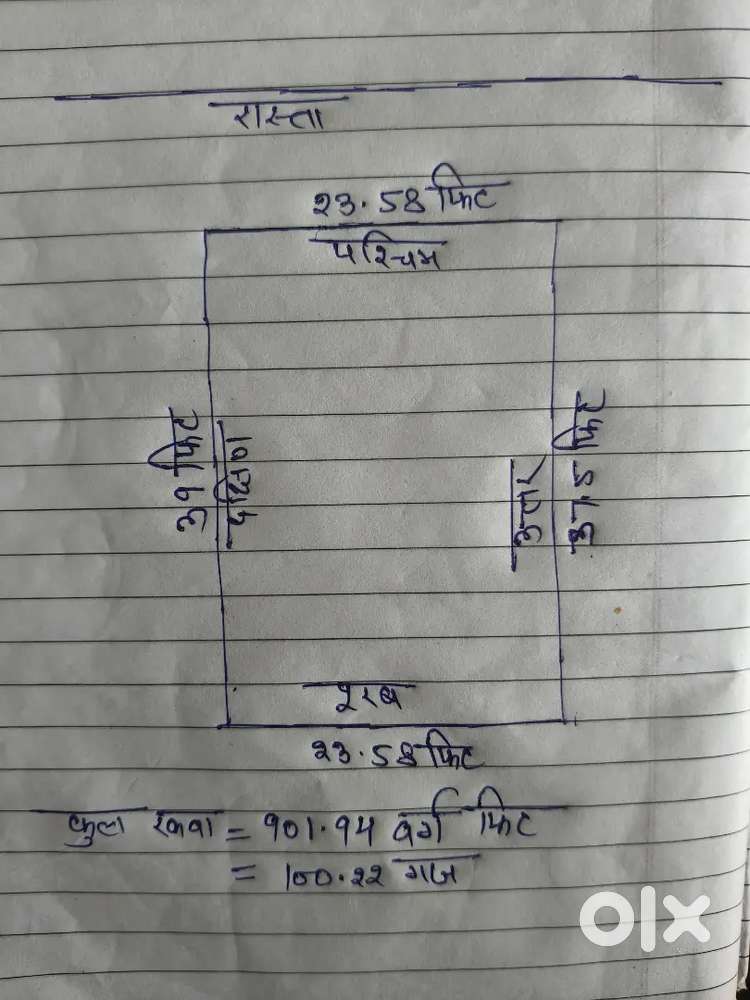 रास्ता
23.58 फिट
पश्चिम
39 फिट
दक्षिण
उत्तर
37.5 फिट
पूरब
23.58 फिट
कुल रकवा = 901.94 वर्ग फिट
= 100.22 गज
olx